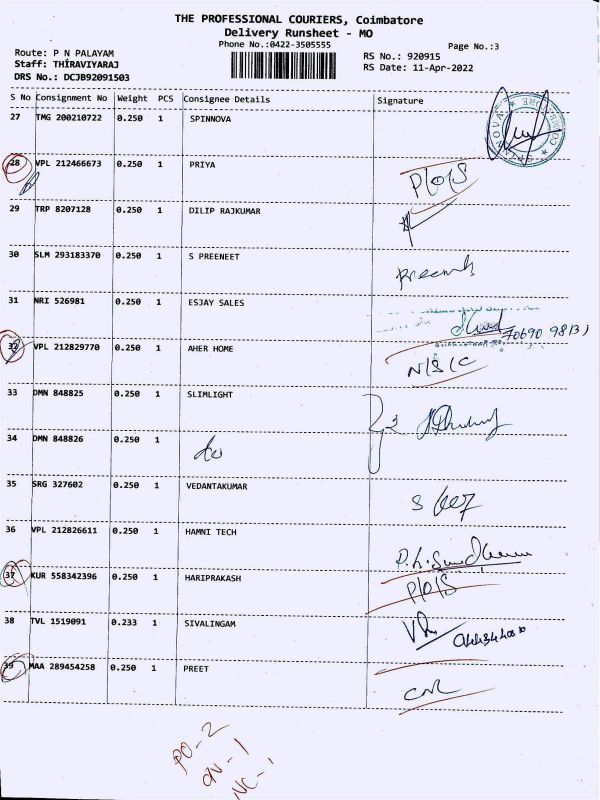 THE PROFESSIONAL COURIERS, Coimbatore
Delivery Runsheet - MO
Phone No.:0422-3505555
Page No.:3
Route: P N PALAYAM
Staff: THIRAVIYARAJ
DRS No.: DCJB92091503
RS No.: 920915
RS Date: 11-Apr-2022
S No Consignment No Weight PCS Consignee Details Signature
27 TMG 200210722 0.250 1 SPINNOVA
28 VPL 212466673 0.250 1 PRIYA P/O/S
29 TRP 8207128 0.250 1 DILIP RAJKUMAR
30 SLM 293183370 0.250 1 S PREENEET
31 NRI 526981 0.250 1 ESJAY SALES
32 VPL 212829770 0.250 1 AHER HOME N/S/C
33 DMN 848825 0.250 1 SLIMLIGHT
34 DMN 848826 0.250 1 do
35 SRG 327602 0.250 1 VEDANTAKUMAR
36 VPL 212826611 0.250 1 HAMNI TECH
37 KUR 558342396 0.250 1 HARIPRAKASH P/O/S
38 TVL 1519091 0.233 1 SIVALINGAM
39 MAA 289454258 0.250 1 PREET
PO-2
CN-1
NC-1